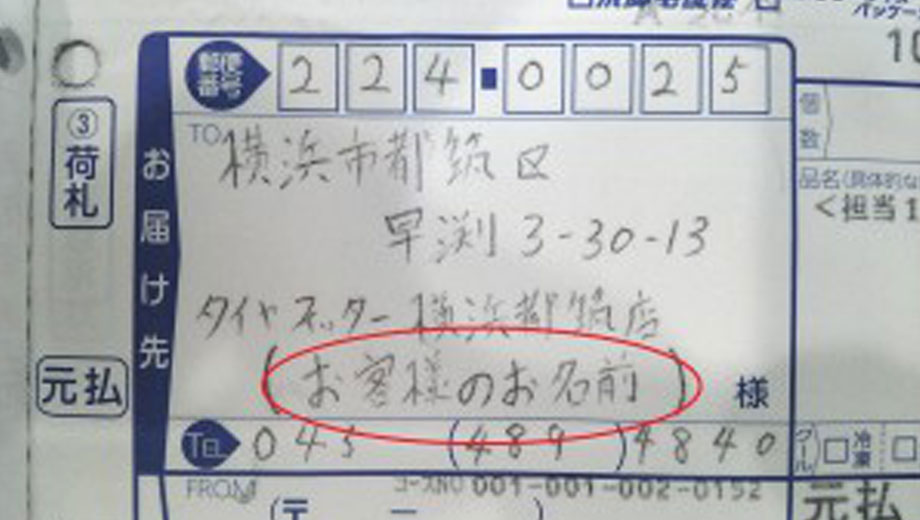 10
郵便番号 224-0025
個数
③荷札
お届け先
TO 横浜市都筑区
品名(具体的な
早渕 3-30-13
<担当1
タイヤセレクター 横浜都筑店
(お客様のお名前) 様
元払
TEL 045 (489) 4840
クール 冷凍
FROM コースNO 001-001-002-0152
(〒 ー )
元払